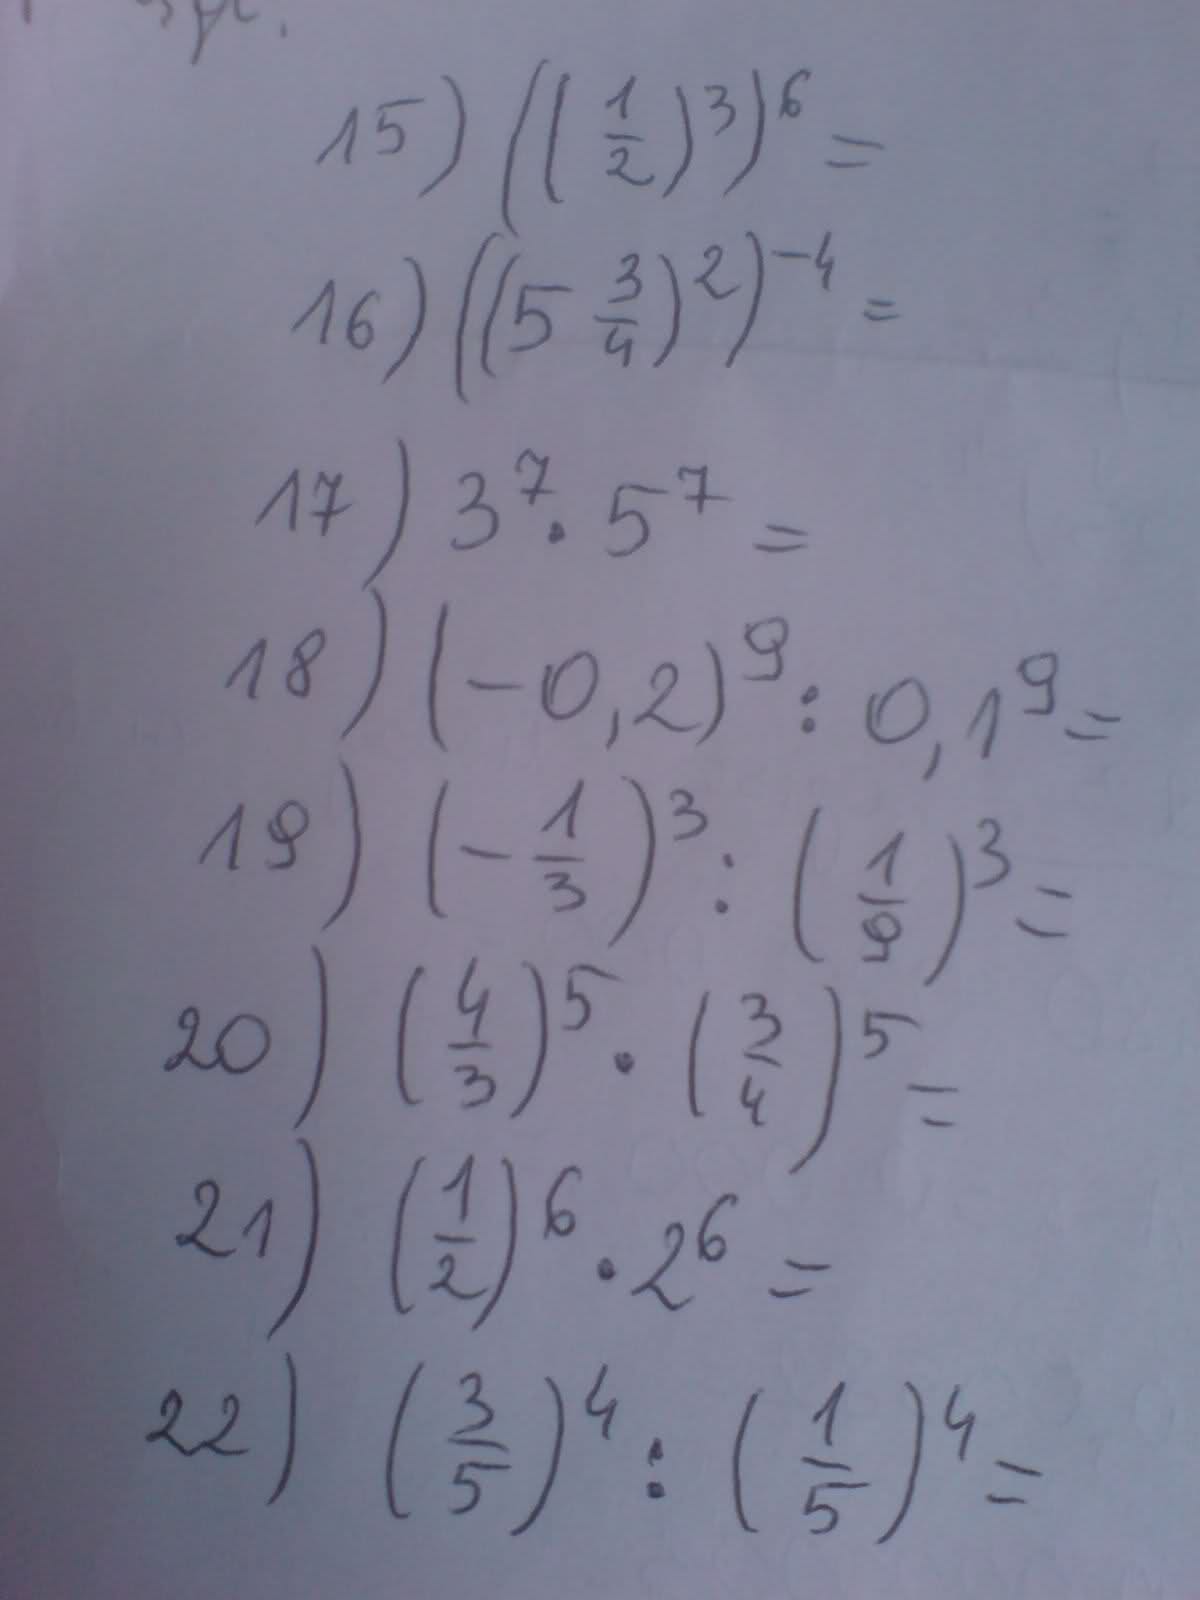 15) ((1/2)^3)^6 =
16) ((5 3/4)^2)^-4 =
17) 3^7 · 5^7 =
18) (-0,2)^9 : 0,1^9 =
19) (-1/3)^3 : (1/9)^3 =
20) (4/3)^5 · (3/4)^5 =
21) (1/2)^6 · 2^6 =
22) (3/5)^4 : (1/5)^4 =